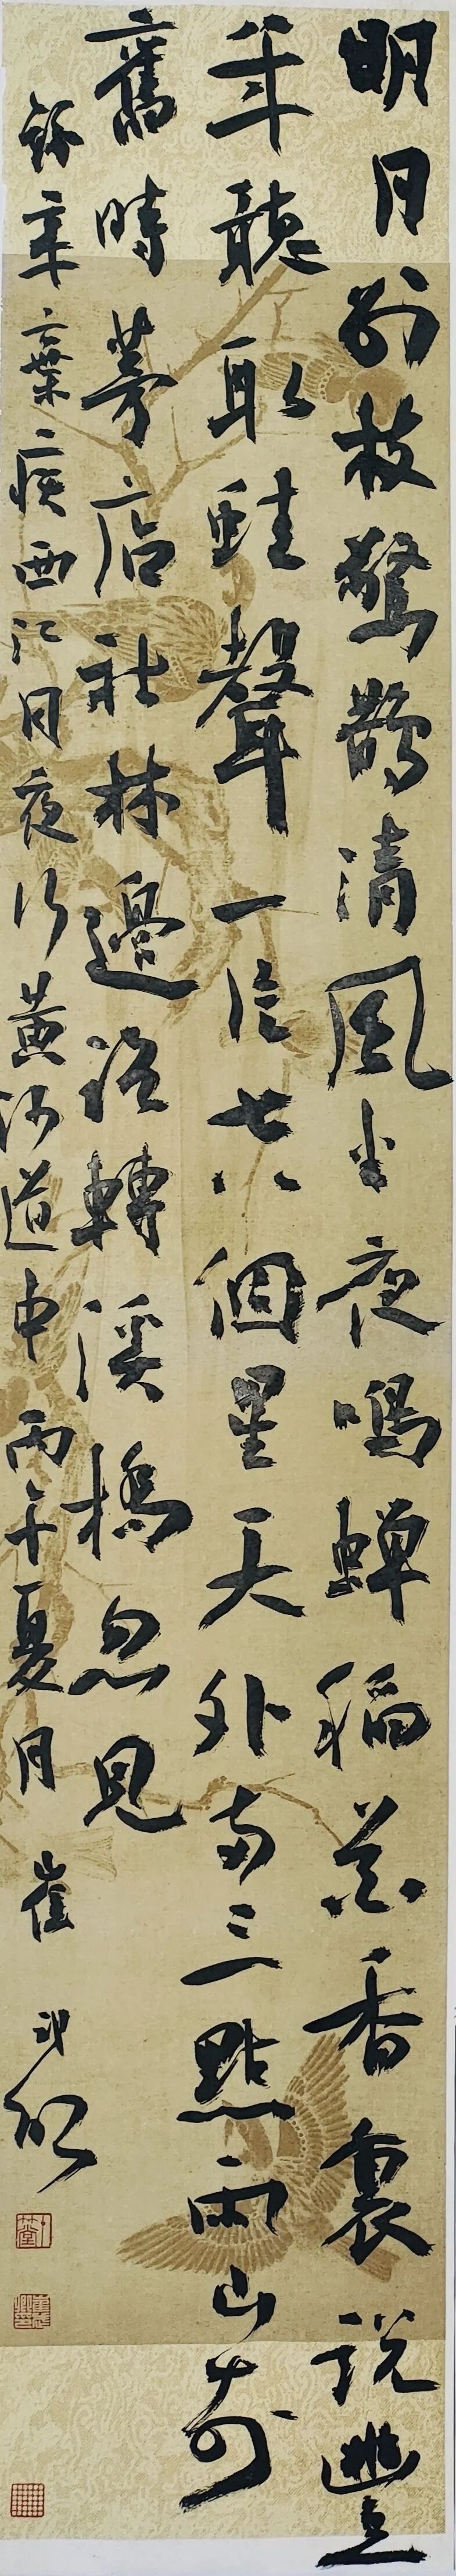 明月别枝驚鵲清風半夜鳴蝉稻花香裏説豐
年聽取蛙聲一片七八個星天外兩三點雨山前
舊時茅店社林邊路轉溪橋忽見
録辛棄疾西江月夜行黄沙道中 丙午夏月 崔